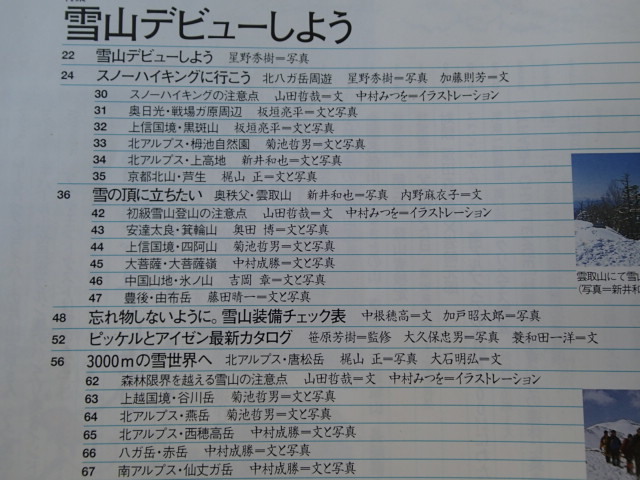 雪山デビューしよう
22 雪山デビューしよう 星野秀樹＝写真
24 スノーハイキングに行こう 北八ガ岳周遊 星野秀樹＝写真 加藤則芳＝文
30 スノーハイキングの注意点 山田哲哉＝文 中村みつを＝イラストレーション
31 奥日光・戦場ガ原周辺 板垣亮平＝文と写真
32 上信国境・黒斑山 板垣亮平＝文と写真
33 北アルプス・栂池自然園 菊池哲男＝文と写真
34 北アルプス・上高地 新井和也＝文と写真
35 京都北山・芦生 梶山 正＝文と写真
36 雪の頂に立ちたい 奥秩父・雲取山 新井和也＝写真 内野麻衣子＝文
42 初級雪山登山の注意点 山田哲哉＝文 中村みつを＝イラストレーション
43 安達太良・箕輪山 奥田 博＝文と写真
44 上信国境・四阿山 菊池哲男＝文と写真
45 大菩薩・大菩薩嶺 中村成勝＝文と写真
46 中国山地・氷ノ山 吉岡 章＝文と写真
47 豊後・由布岳 藤田晴一＝文と写真
48 忘れ物しないように。雪山装備チェック表 中根穂高＝文 加戸昭太郎＝写真
52 ピッケルとアイゼン最新カタログ 笹原芳樹＝監修 大久保忠男＝写真 蓑和田一洋＝文
56 3000mの雪世界へ 北アルプス・唐松岳 梶山 正＝写真 大石明弘＝文
62 森林限界を越える雪山の注意点 山田哲哉＝文 中村みつを＝イラストレーション
63 上越国境・谷川岳 菊池哲男＝文と写真
64 北アルプス・燕岳 菊池哲男＝文と写真
65 北アルプス・西穂高岳 中村成勝＝文と写真
66 八ガ岳・赤岳 中村成勝＝文と写真
67 南アルプス・仙丈ガ岳 中村成勝＝文と写真
雲取山にて雪山
（写真＝新井和